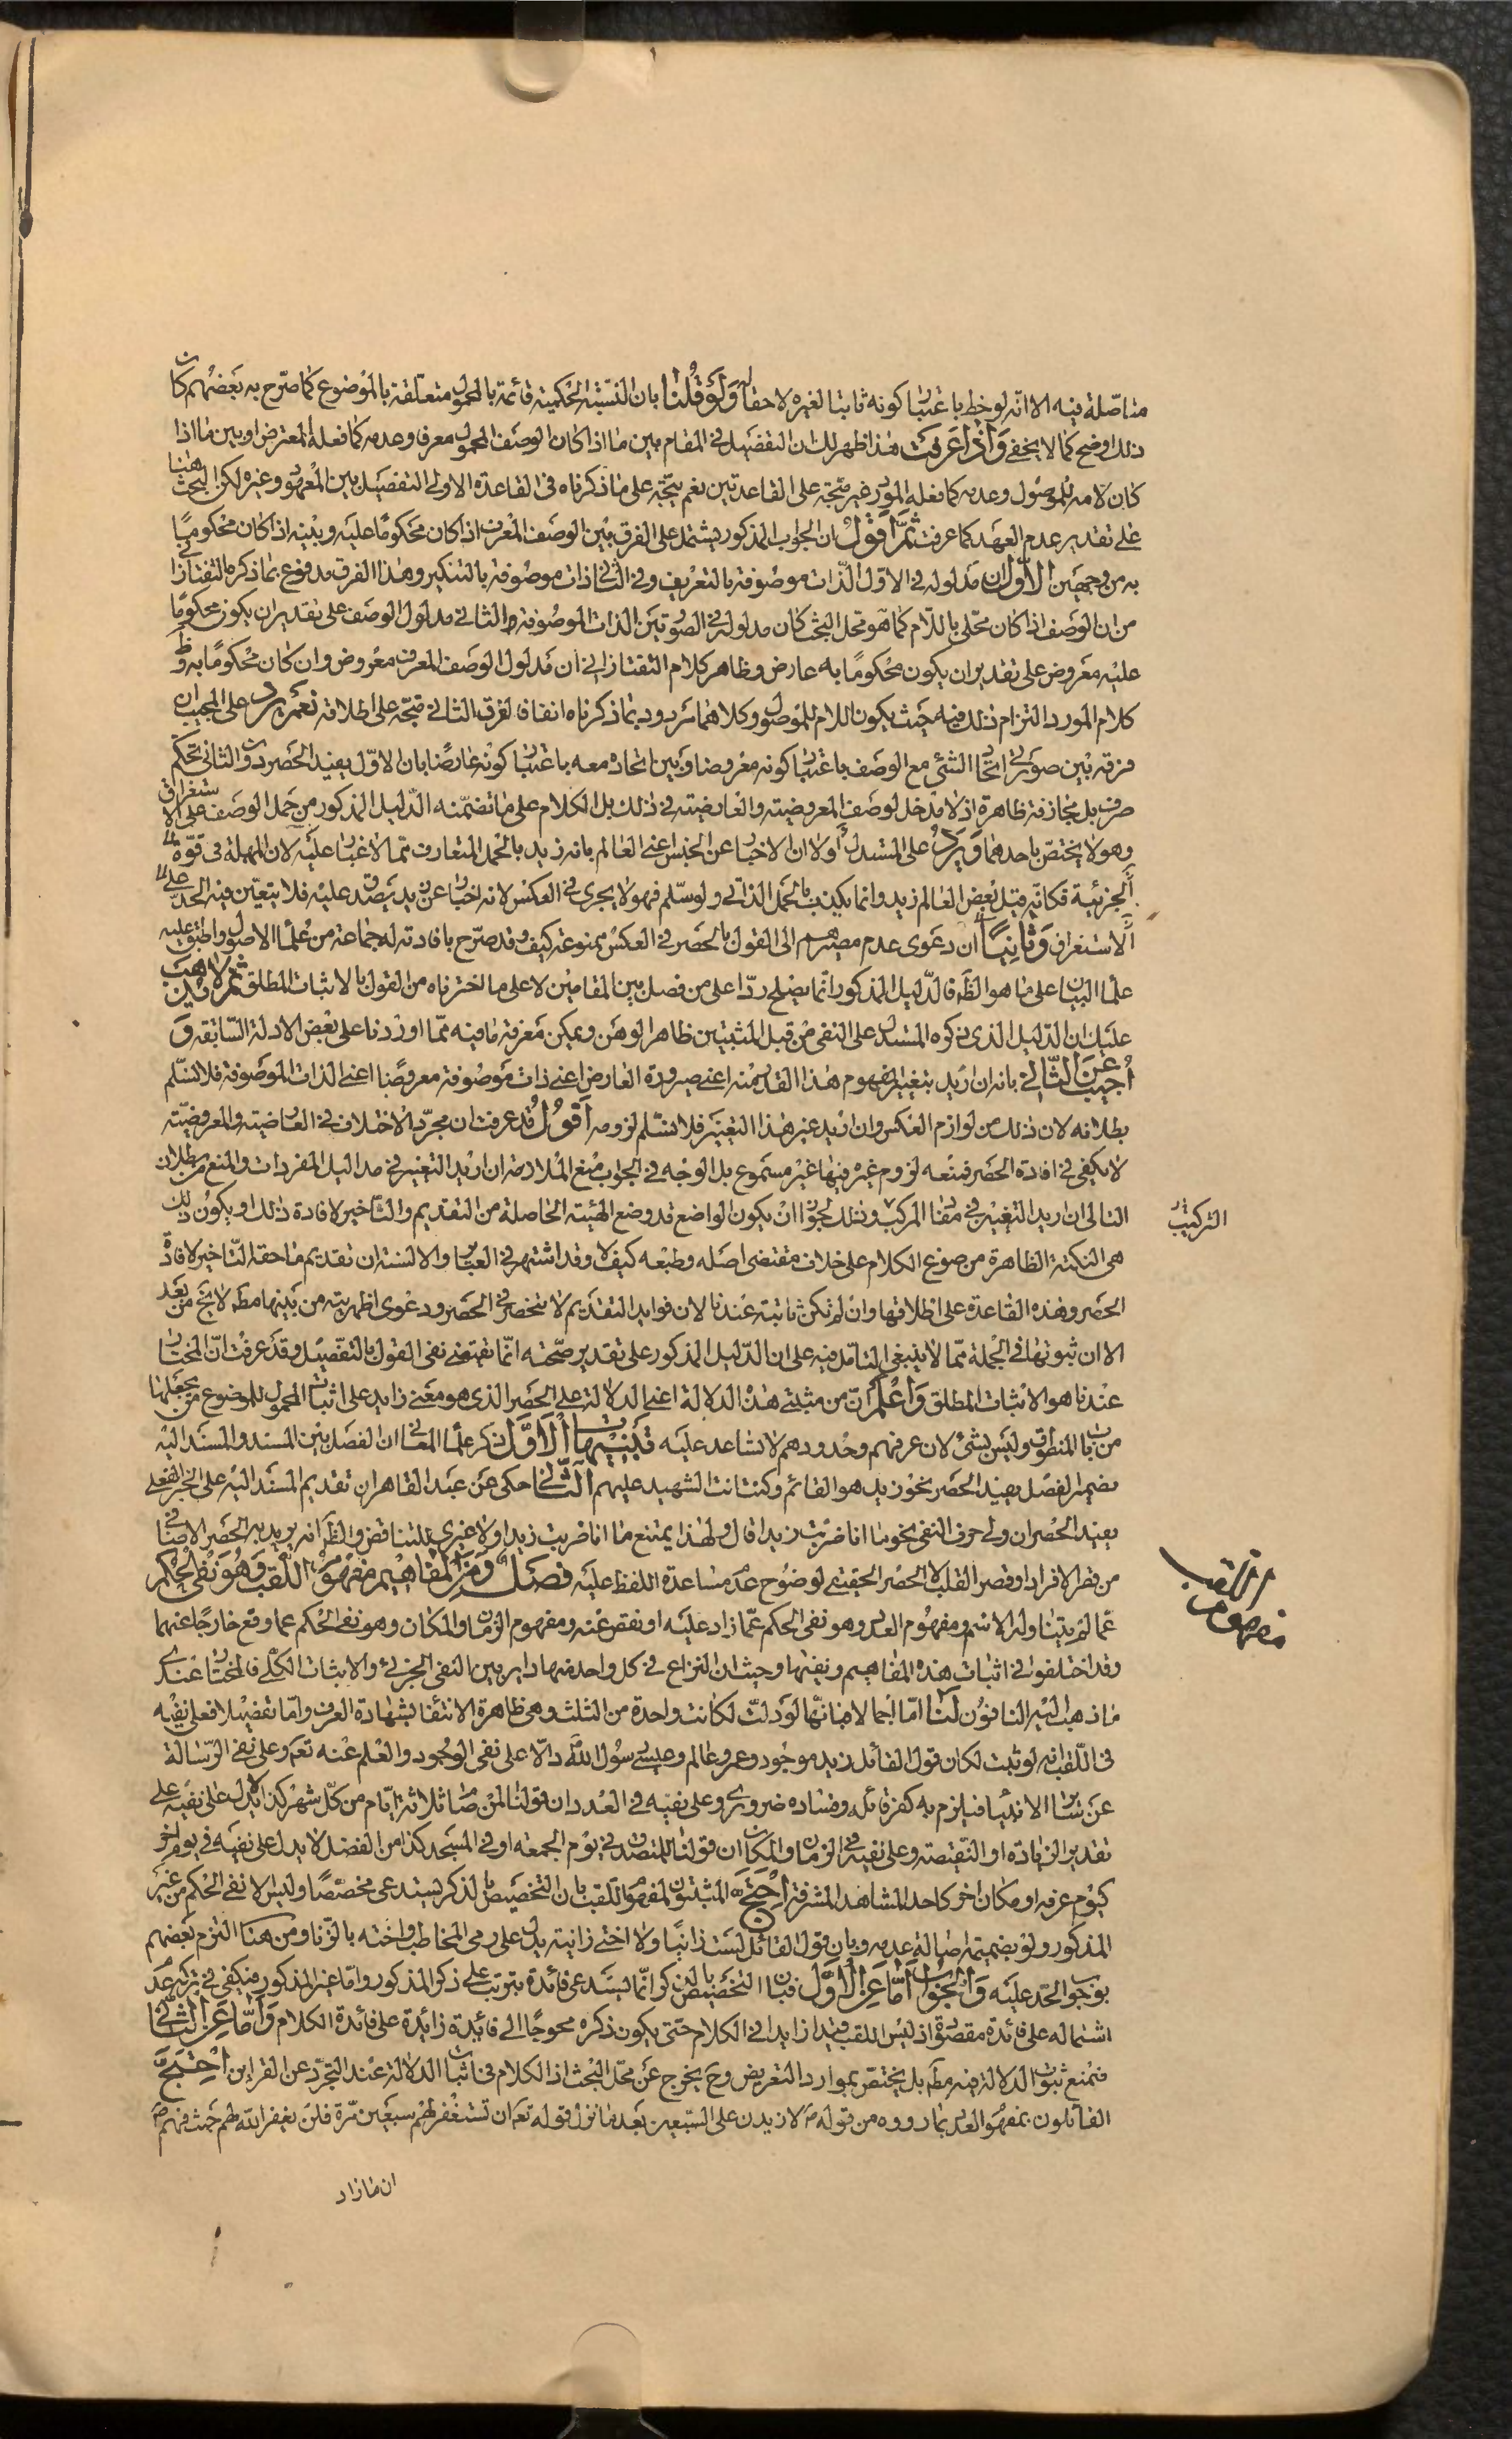 متاصّلة فيه الا انّه لوحظ باعتبار كونه ثابتا لغيره لاحقا له ولو قلنا بان النسبة الحكمية قائمة بالمحمول متعلقة بالموضوع كما صرّح به بعضهم كان
ذلك اوضح كما لا يخفى واذا عرفت هذا ظهر لك ان التفصيل في المقام بين ما اذا كان الوصف المحمول معرفا وعدمه كما فعله المعترض او بين ما اذا
كان لامه للموصول وعدمه كما فعله المورد غير متّجه على القاعدتين نعم يتّجه على ما ذكرناه في القاعدة الاولى التفصيل بين المعهود وغيره لكن البحث هنا
على تقدير عدم العهد كما عرفت ثمّ اقول ان الجواب المذكور يشتمل على الفرق بين الوصف المعرف اذا كان محكومًا عليه وبينه اذا كان محكومًا
به من وجهين الاول ان مدلوله في الاوّل الذّات موصوفة بالتعريف وفي الثاني ذات موصوفة بالتنكير وهذا الفرق مدفوع بما ذكره التفتازاني
من ان الوصف اذا كان محلّى باللّام كما هو محل البحث كان مدلوله في الصورتين الذات الموصوفة والثاني مدلول الوصف على تقدير ان يكون محكومًا
عليه معروض على تقدير ان يكون محكومًا به عارض وظاهر كلام التفتازاني ان مدلول الوصف المعرف معروض وان كان محكومًا به وظ
كلام المورد التزام ذلك فيه حيث يكون اللام للموصول وكلاهما مردود بما ذكرناه انفا فالفرق الثاني متّجه على اطلاقه نعم يرد على المجيب ان
فرقه بين صورتي اتحاد الشئ مع الوصف باعتبار كونه معروضا وبين اتحاده معه باعتبار كونه عارضًا بان الاوّل يفيد الحصر دون الثاني تحكم
صرف بل مجازفة ظاهرة اذ لا مدخل لوصف المعروضية والعارضية في ذلك بل الكلام على ما تضمّنه الدّليل المذكور من حمل الوصف على الاستغراق
وهو لا يختصّ باحدهما ويرد على المستدل اولا ان الاخبار عن الجنس اعني العالم بانه زيد بالحمل المتعارف ممّا لا غبار عليه لان المهملة في قوّة
الجزئية فكانّه قيل بعض العالم زيد وانما يكذب بالحمل الذاتي ولو سلّم فهو لا يجري في العكس لانه اخبار عن زيد بصدقه عليه فلا يتعيّن فيه الحمل على
الاستغراق وثانيًا ان دعوى عدم مصيرهم الى القول بالحصر في العكس ممنوعة كيف وقد صرّح بافادته له جماعة من علماء الاصول واطبق عليه
علماء البيان على ما هو الظّ فالدّليل المذكور انّما يصلح ردّا على من فصل بين المقامين لا على ما اخترناه من القول بالاثبات المطلق ثم لا يذهب
عليك ان الدّليل الذي ذكره المستدل على النفى من قبل المثبتين ظاهر الوهن ويمكن معرفة ما فيه ممّا اوردنا على بعض الادلة السّابقة و
اجيب عن الثّاني بانه ان اريد بتغير المفهوم هذا القدر منه اعني صيرورة العارض اعني ذات موصوفة معروضًا اعني الذات الموصوفة فلا نسلّم
بطلانه لان ذلك من لوازم العكس وان اريد غير هذا التغير فلا نسّلم لزومه اقول قد عرفت ان مجرّد الاختلاف في العارضية والمعروضيّة
لا يكفي في افادة الحصر فمنعه لزوم غيره فيها غير مسموع بل الوجه في الجواب منع الملازمة ان اريد التغير في مداليل المفردات والمنع من بطلان
التالي ان اريد التغيير في مفاد المركب وذلك لجواز ان يكون الواضع قد وضع الهيئة الحاصلة من التقديم والتاخير لافادة ذلك او يكون ذلك
التركيب
هي النكتة الظاهرة من صوغ الكلام على خلاف مقتضى اصله وطبعه كيف لا وقد اشتهر في العبارة والالسنة ان تقديم ما حقه التّاخير لافادة
الحصر وهذه القاعدة على اطلاقها وان لم تكن ثابتة عندنا لان فوايد التقديم لا تنحصر في الحصر ودعوى اظهريته من بينها مط لا تخ من بعد
الا ان ثبوتها في الجملة ممّا لا ينبغي التامّل فيه على ان الدّليل المذكور على تقدير صحّته انّما يقتضي نفى القول بالتفصيل وقد عرفت انّ المختار
عندنا هو الاثبات المطلق واعلم انّ من مثبتي هذه الدلالة اعني الدلالة على الحصر الذي هو معنى زايد على اثبات المحمول للموضوع من يجعلها
من باب المنطوق وليس بشئ لان عرفهم وحدودهم لا تساعد عليه تنبيهات الاوّل ذكر علماء المعاني ان الفصل بين المسند والمسند اليه
بضمير الفصل يفيد الحصر نحو زيد هو القائم وكنت انت الشهيد عليهم الثّاني حكى عن عبد القاهر ان تقديم المسند اليه على الخبر الفعلى
يفيد الحصر ان ولى حرف النفى نحو ما انا ضربت زيدا قال ولهذا يمتنع ما انا ضربت زيدا ولا غيري للتناقض والظّ انه يريد به الحصر الاضافي
من قصر الافراد او قصر القلب لا الحصر الحقيقى لوضوح عدم مساعدة اللفظ عليه فصل ومن المفاهيم مفهوم اللقب وهو نفى الحكم
مفهوم اللقب
عمّا لم يتناوله الاسم ومفهوم العدد وهو نفى الحكم عمّا زاد عليه او نقص عنه ومفهوم الزمان والمكان وهو نفى الحكم عما وقع خارجًا عنهما
وقد اختلفوا في اثبات هذه المفاهيم ونفيها وحيث ان النزاع في كل واحد منها داير بين النفى الجزئى والاثبات الكلّى فالمختار عندي
ما ذهب اليه النافون لنا امّا اجمالا فبانّها لو دلّت لكانت واحدة من الثلث وهى ظاهرة الانتفاء بشهادة العرف وامّا تفصيلا فعلى نفيه
في اللّقب انه لو ثبت لكان قول القائل زيد موجود وعمرو عالم وعيسى رسول اللّه دالّا على نفى الوجود والعلم عنه تعم وعلى نفى الرّسالة
عن ساير الانبياء فيلزم به كفر قائله وفساده ضروري وعلى نفيه في العدد ان قولنا لمن صام ثلاثة ايّام من كلّ شهر كذا لا يدل على نفيه على
تقدير الزيادة او النّقيصة وعلى نفيه في الزمان والمكان ان قولنا للمتصدق في يوم الجمعة او في المسجد كذا من الفضل لا يدل على نفيه في يوم اخر
كيوم عرفه او مكان اخر كاحد المشاهد المشرفة احتجّ المثبتون لمفهوم اللّقب بان التخصيص بالذكر يستدعى مخصّصًا وليس الا نفى الحكم من غير
المذكور ولو بضميمة اصالة عدمه وبان قول القائل لست زانيًا ولا اختى زانية يدل على رمى المخاطب واخته بالزّنا ومن هنا التزم بعضهم
بوجوب الحدّ عليه والجواب امّا عن الاوّل فبان التخصيص بالذكر انّما يستدعى فائدة يترتب على ذكر المذكور وامّا غير المذكور فيكفى في تركه عدم
اشتماله على فائدة مقصودة اذ ليس اللقب قيدا زايدا في الكلام حتّى يكون ذكره محوجًا الى فائدة زائدة على فائدة الكلام وامّا عن الثّاني
فبمنع ثبوت الدلالة فيه مط بل يختصّ بموارد التعريض وح يخرج عن محل البحث اذ الكلام في اثبات الدلالة عند التجرّد عن القراين احتجّ
القائلون بمفهوم العدد بما رووه من قوله ص لازيدن على السّبعين بعد ما نزل قوله تعم ان تستغفر لهم سبعين مرّة فلن يغفر اللّه لهم حيث فهم ص
ان ما زاد